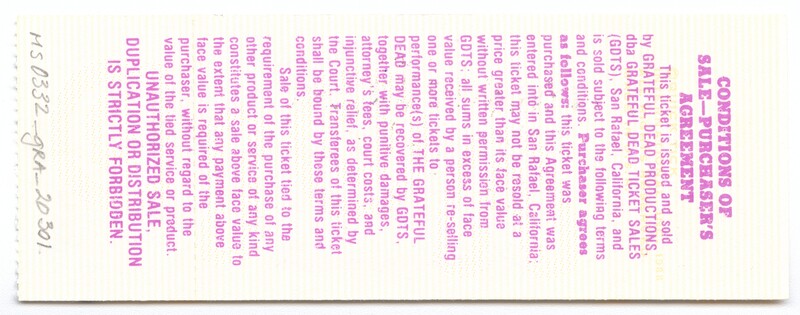 CONDITIONS OF
SALE—PURCHASER'S
AGREEMENT
This ticket is issued and sold
by GRATEFUL DEAD PRODUCTIONS,
dba GRATEFUL DEAD TICKET SALES
(GDTS), San Rafael, California, and
is sold subject to the following terms
and conditions. Purchaser agrees
as follows: this ticket was
purchased and this Agreement was
entered into in San Rafael, California;
this ticket may not be resold at a
price greater than its face value
without written permission from
GDTS; all sums in excess of face
value received by a person re-selling
one or more tickets to
performance(s) of THE GRATEFUL
DEAD may be recovered by GDTS,
together with punitive damages,
attorney's fees, court costs, and
injunctive relief, as determined by
the Court. Transferees of this ticket
shall be bound by these terms and
conditions.
Sale of this ticket tied to the
requirement of the purchase of any
other product or service of any kind
constitutes a sale above face value to
the extent that any payment above
face value is required of the
purchaser, without regard to the
value of the tied service or product.
UNAUTHORIZED SALE,
DUPLICATION OR DISTRIBUTION
IS STRICTLY FORBIDDEN.
MS0332_gRA_20301.